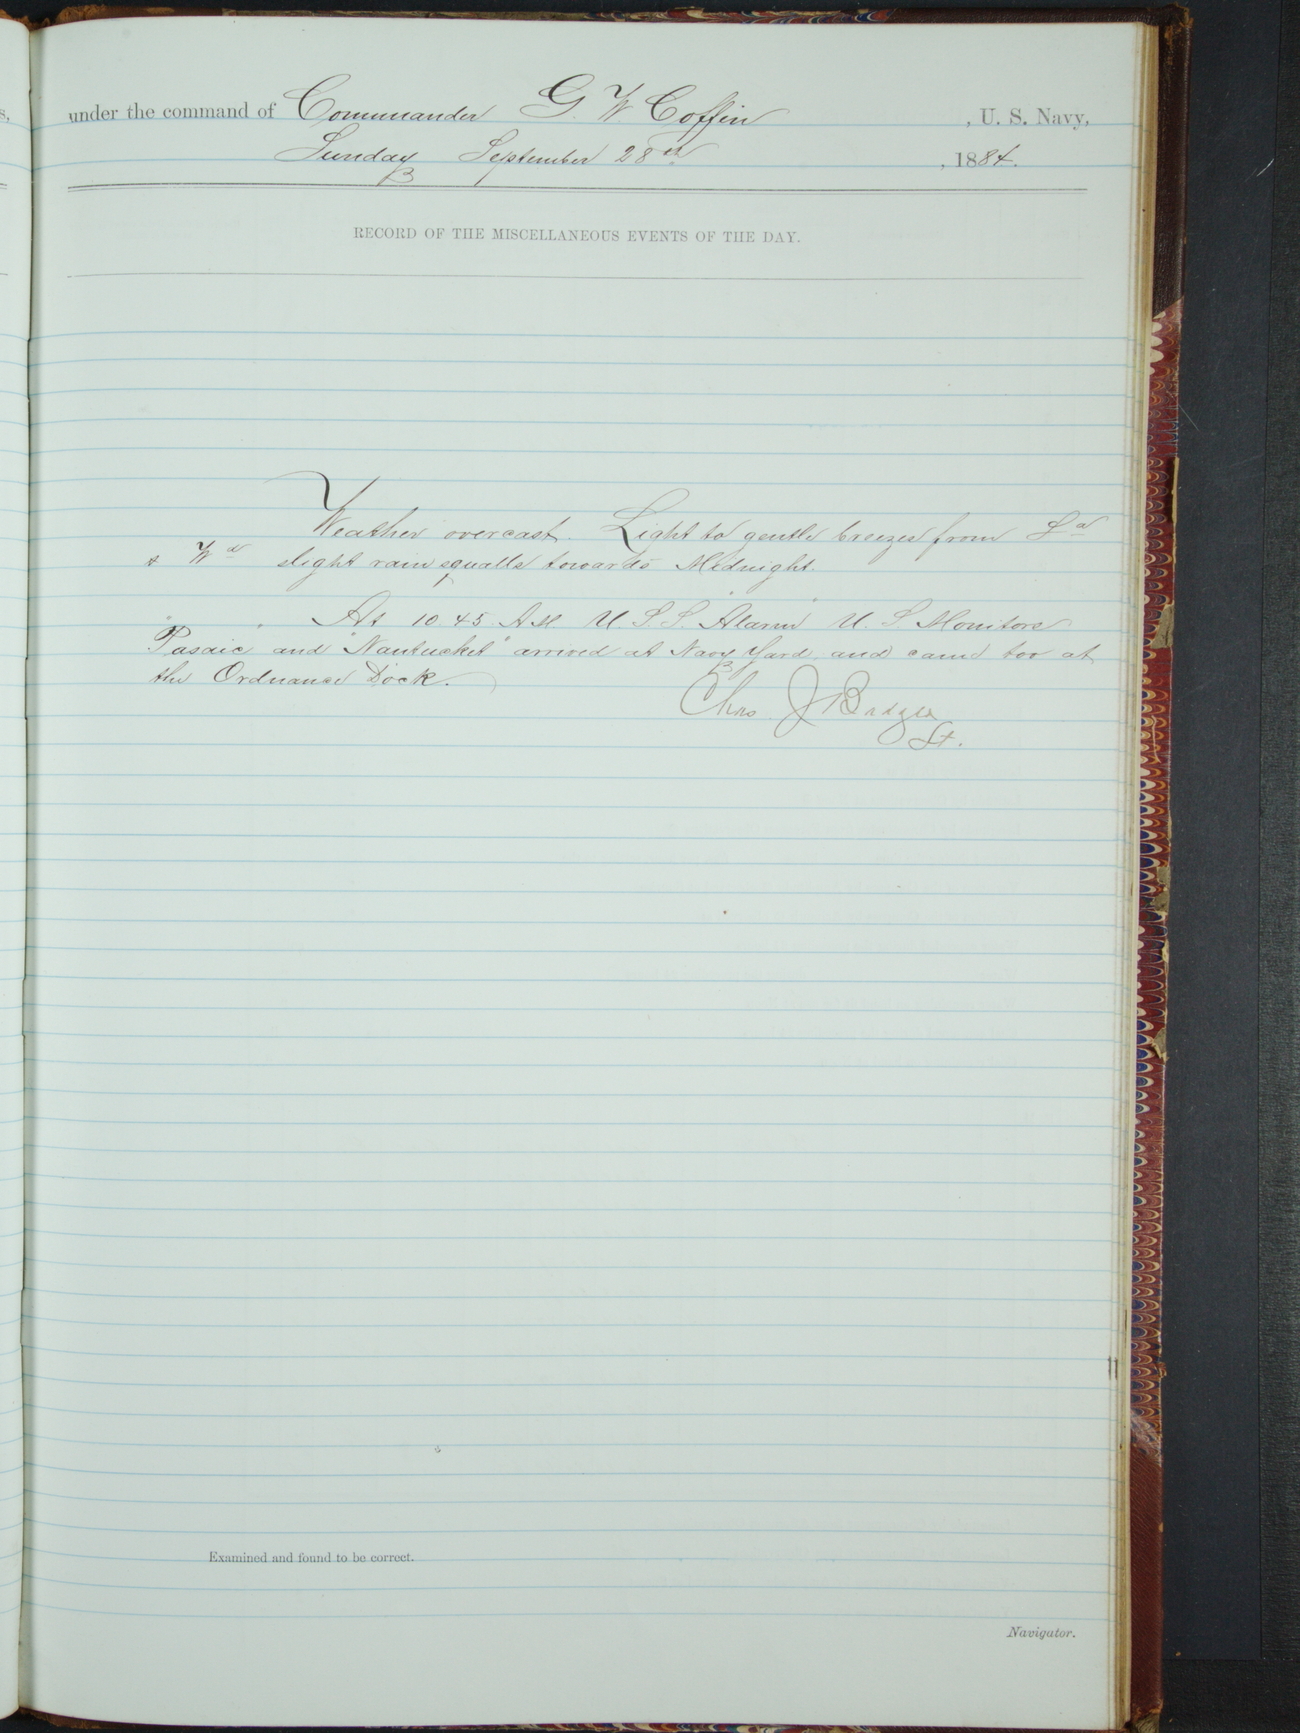 under the command of Commander G. W. Coffin , U. S. Navy,
Sunday September 28th , 1884.
RECORD OF THE MISCELLANEOUS EVENTS OF THE DAY.
Weather overcast. Light to gentle breezes from Sd
& Wd slight rain squalls towards Midnight.
At 10.45 AM U.S.S. "Alarm" U.S Monitors
"Pasaic" and "Nantucket" arrived at Navy Yard and came too at
the Ordnance Dock.
Chas. J Badger
Lt.
Examined and found to be correct.
Navigator.